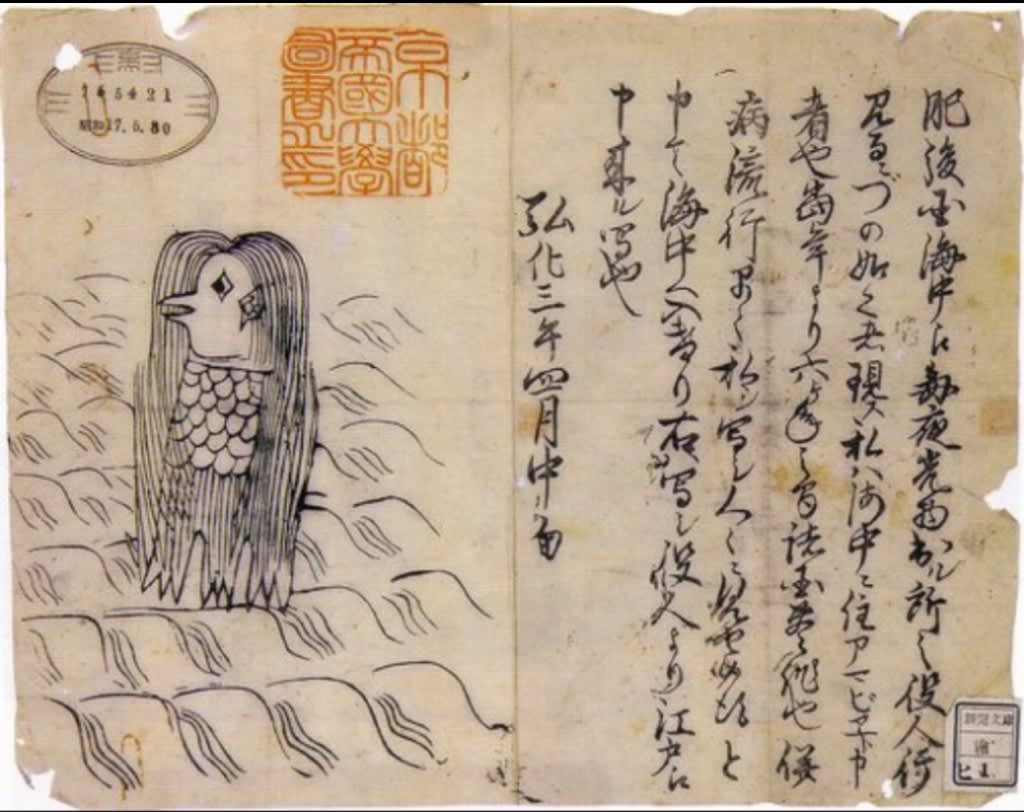 肥後国海中江毎夜光物出ル所之役人行
見るニづの如之者現ス私ハ海中ニ住アマビヱト申
者也當年より六ヶ年之間諸国豊作也併
病流行早々私シ写シ人々ニ見セ候得と
申て海中へ入けり右写シ役人より江戸江
申来ル写也
弘化三年四月中旬
京都
帝國大學
圖書之印
昭和17.5.30
文庫
ヒ 1